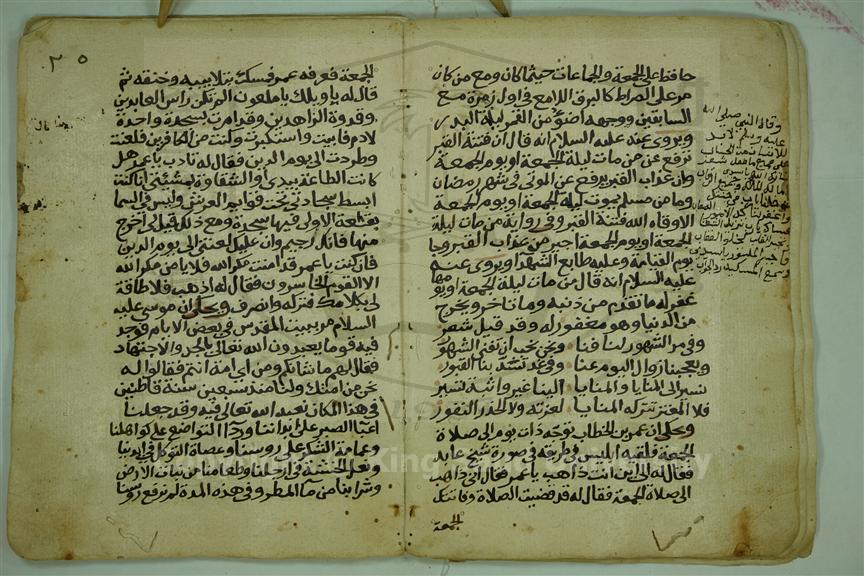 حافظ على الجمعة والجماعات حيثما كان ومع من كان
مر على الصراط كالبرق اللامع في اول زمرة مع
السابقين ووجهه اضوء من القمر ليلة البدر
ويروى عنه عليه السلام انه قال ان فتنة القبر
ترفع عن من مات ليلة الجمعة او يوم الجمعة
وان عذاب القبر يرفع عن الموتى في شهر رمضان
وما من مسلم يموت ليلة الجمعة او يوم الجمعة
الا وقاه الله فتنة القبر وفي رواية من مات ليلة
الجمعة او يوم الجمعة اجير من عذاب القبر وجا
يوم القيامة وعليه طابع الشهدا ويروى عنه
عليه السلام انه قال من مات ليلة الجمعة او يومها
غفر له ما تقدم من ذنبه وما تاخر ويخرج
من الدنيا وهو مغفور له وقد قيل شعر
وفي مر الشهور لنا فنا ونحن نحب ان تفنى الشهور
ويعجبنا زوال اليوم عنا
نسير الى المنايا والمنايا الينا غير واثبة تسير
فلا المغتر تتركه المنايا لعزته ولا الحذر النفور
وحكي ان عمر بن الخطاب توجه ذات يوم الى صلاة
الجمعة فلقيه ابليس في طريقه في صورة شيخ عابد
فقال له الى اين انت ذاهب يا عمر فقال اني ذاهب
الى صلاة الجمعة فقال له قد قضيت الصلاة وفاتتك
الجمعة
وقال النبي صلى الله
عليه وسلم
٢٥
الجمعة فعرفه عمر فمسك بتلابيبه وخنقه ثم
قال له يا ويلك يا ملعون الم تكن راس العابدين
وقدوة الزاهدين وقد امرت بسجدة واحدة
لادم فابيت واستكبرت وكنت من الكافرين فلعنت
وطردت الى يوم الدين فقال له تادب يا عمر هل
كانت الطاعة بيدي او الشقاوة بمشيئتي انا كنت
ابسط سجادتي تحت قوايم العرش وليس في السما
بقعة الا ولي فيها سجدة ومع ذلك قيل لي اخرج
منها فانك رجيم وان عليك لعنتي الى يوم الدين
فان كنت يا عمر قد امنت مكر الله فلا يامن مكر الله
الا القوم الخاسرون فقال له اذهب فلا طاقة
لي بكلامك فتركه وانصرف وحكي ان موسى عليه
السلام مر ببيت المقدس في بعض الايام فوجد
فيه قوما يعبدون الله تعالى بالجد والاجتهاد
فقال لهم ما شانكم ومن اي امة انتم فقالوا له
نحن من امتك ولنا منذ سبعين سنة قاطنين
في هذا المكان نعبد الله تعالى فيه وقد جعلنا
الصبر على ابداننا وردا التواضع على كواهلنا
وعمامة الشكر على روسنا وعصاة التوكل في ايدينا
ونعل الخشية في ارجلنا وطعامنا من نبات الارض
وشرابنا من ما المطر وفي هذه المدة لم نرفع روسنا